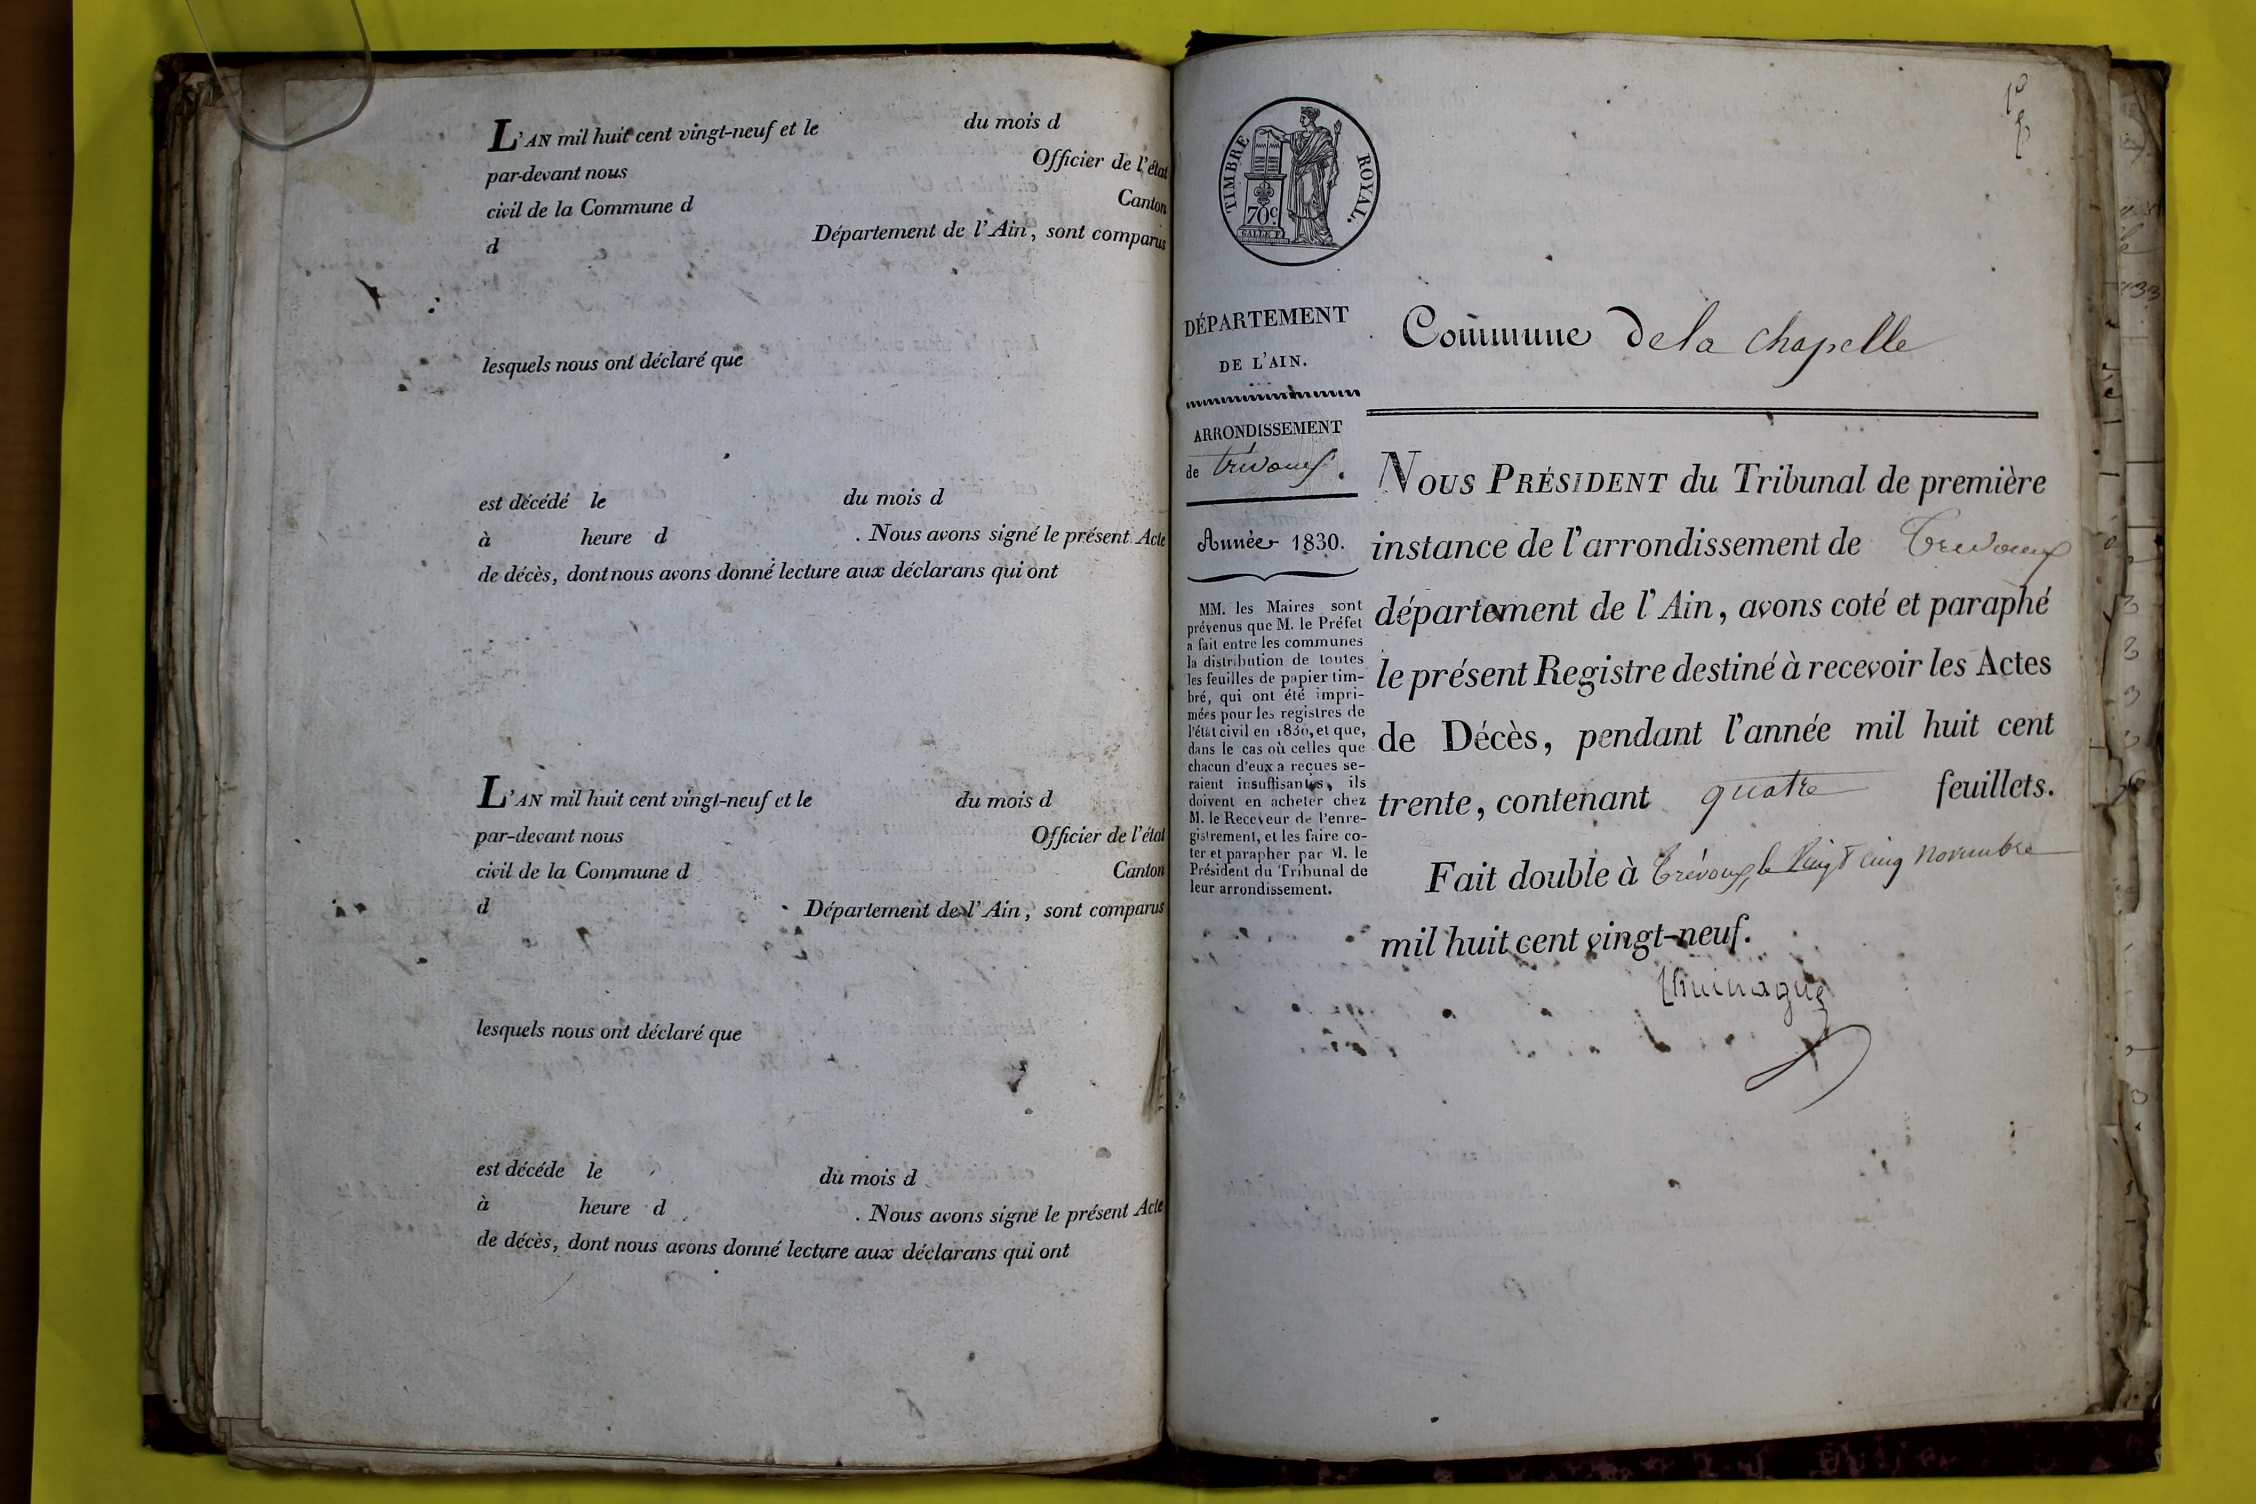 L'AN mil huit cent vingt-neuf et le du mois d
par-devant nous Officier de l'état
civil de la Commune d Canton
d Département de l'Ain, sont comparus
lesquels nous ont déclaré que
est décédé le du mois d
à heure d . Nous avons signé le présent Acte
de décès, dont nous avons donné lecture aux déclarans qui ont
L'AN mil huit cent vingt-neuf et le du mois d
par-devant nous Officier de l'état
civil de la Commune d Canton
d Département de l'Ain, sont comparus
lesquels nous ont déclaré que
est décéde le du mois d
à heure d . Nous avons signé le présent Acte
de décès, dont nous avons donné lecture aux déclarans qui ont
TIMBRE ROYAL.
70c.
DÉPARTEMENT
DE L'AIN.
ARRONDISSEMENT
de trévoux.
Année 1830.
MM. les Maires sont
prévenus que M. le Préfet
a fait entre les communes
la distribution de toutes
les feuilles de papier tim-
bré, qui ont été impri-
mées pour les registres de
l'état civil en 1830, et que,
dans le cas où celles que
chacun d'eux a reçues se-
raient insuffisantes, ils
doivent en acheter chez
M. le Receveur de l'enre-
gistrement, et les faire co-
ter et parapher par M. le
Président du Tribunal de
leur arrondissement.
Commune de la chapelle
NOUS PRÉSIDENT du Tribunal de première
instance de l'arrondissement de Trévoux
département de l'Ain, avons coté et paraphé
le présent Registre destiné à recevoir les Actes
de Décès, pendant l'année mil huit cent
trente, contenant quatre feuillets.
Fait double à Trévoux, le Vingt cinq novembre
mil huit cent vingt-neuf.